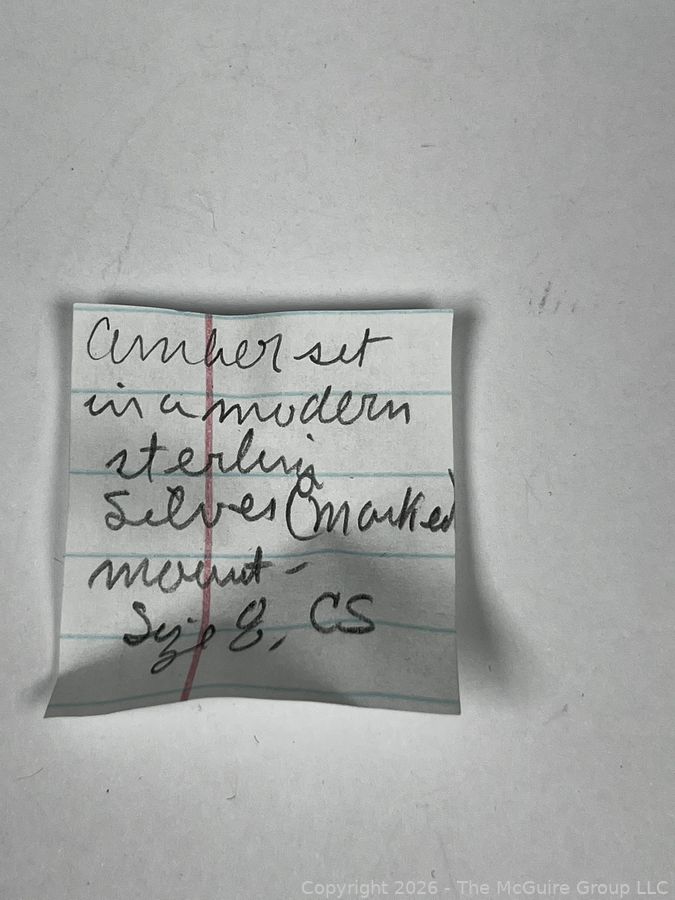 Amber set
in a modern
sterling
Silver (marked)
mount -
Size 8, CS
Copyright 2026 - The McGuire Group LLC